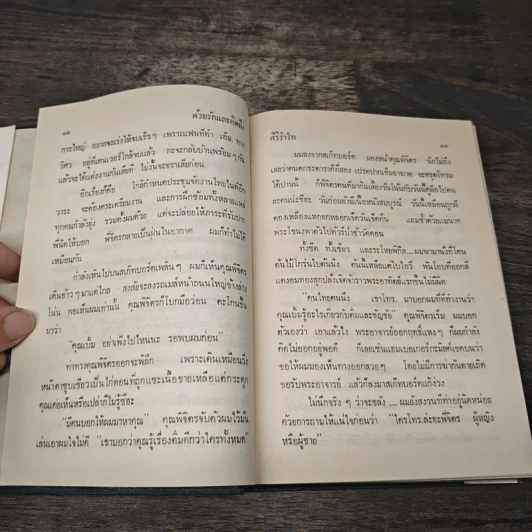 ๑๖
ด้วยรักและคิดถึง
การใหญ่ อยากจะเร่งให้จบเร็วๆ เพราะแฟนที่ทำ เอ็ม. ทาง
วิศว อยู่ที่เดนเวอร์ใกล้จบแล้ว กะจะกลับบ้านพร้อมๆ กัน
แล้วจะได้แต่งงานกันเสียที ไม่งั้นจะชราเสียก่อน
อีกเรื่องก็คือ ใกล้กำหนดประชุมจัดงานไทยไนท์อีก
วาระ จะต้องตระเตรียมงาน และการฝึกซ้อมทั้งหลายแหล่
ทุกคนกำลังยุ่ง รวมทั้งผมด้วย แต่จะปล่อยให้ภาระที่รับปาก
พี่นิดให้บอก พิจิตรกลายเป็นฝุ่นในอากาศ ผมก็ทำไม่ได้
เหมือนกัน
กำลังเห็นไปบนสเก๊ทบอร์ดเพลินๆ ผมก็เห็นคุณพิจิตร
เดินอ้าวๆ มาแต่ไกล สงสัยจะลงรถเมล์หน้าถนนใหญ่ข้างล่าง
โน่น พอเห็นผมเท่านั้น คุณพิจิตรก็โบกมือว่อน ตะโกนขึ้น
มาว่า
"คุณเบิ้ม อย่าเพิ่งไปไหนนะ รอพบผมก่อน"
ท่าทางคุณพิจิตรออกจะพิลึก เพราะเดินเหมือนวิ่ง
หน้าตาซูบเซียวเป็นไก่ตอนที่ถูกแซะเนื้อขายเหลือแต่กระดูก
คุณเคยเห็นหรือเปล่าก็ไม่รู้ซีฮะ
"มีคนบอกให้ผมมาหาคุณ" คุณพิจิตรจับตัวผมไว้มั่น
เล่นเอาผมใจไม่ดี "เขาบอกว่าคุณรู้เรื่องติ๋มดีกว่าใครทั้งหมด"
ศิริรำไพ
๑๗
ผมลงจากสเก๊ทบอร์ด มองหน้าคุณพิจิตร นึกไม่ถึง
เลยว่าคนตกกะตาราคีสลอง เปรตปากเข็มอาฆาต จะทรุดโทรม
ได้ปานนี้ ก็พิจิตรคนที่มากินเลี้ยงวันไนท์บาร์บีคิวผมดูยังไปคน
ละคนน่ะซีฮะ วันก่อนยังร่มเนื้อหนังสมบูรณ์ วันนี้เหมือนถูกผี
ดองเหลืองแหกอกหลอกเจ็ดวันเจ็ดคืน แถมซ้ำด้วยแม่นาค
พระโขนงพาตัวไปทัวร์ป่าช้าวัดดอน
ทั้งซีด ทั้งเซียว และระโหยพิกล....ผมพามานั่งที่โคน
ต้นโบ้ใกร่นใบต้นนึง ต้นนี้เหลือแต่ใบไกรี พันโอบที่ออกสี
แดงอมทองสุกปลั่งจิตอร่าราวพระอาทิตย์แรกขึ้นไม่มีผิด
"คนไทยคนนึง เขาโทร. มาบอกผมที่ที่ทำงานว่า
คุณเบิ้มรู้อะไรเกี่ยวกับติ๋มและขัยยุธ" คุณพิจิตรเริ่ม ผมบอก
ตัวเองว่า เอาแล้วไง พระอาจารย์ออกฤทธิ์แหงๆ ก็ผมกำลัง
คิดไม่ออกอยู่พอดี ก็เลยเซ่นแฮมเบอเกอร์กะมัสเต็ดขนบนว่า
ขอให้ผมมองเห็นทางออกสวยๆ โดยไม่มีการฆ่ากันตายเถิด
ขอรับพระอาจารย์ แล้วก็ลงมาสเก๊ทบอร์ดแก้ง่วง
ไม่นึกจริงๆ ว่าจะขลัง.... ผมยังสงวนท่าทีอยู่นิดหน่อย
ด้วยการถามให้แน่ใจก่อนว่า "ใครโทร.ล่ะฮะพี่จิตร ผู้หญิง
หรือผู้ชาย"